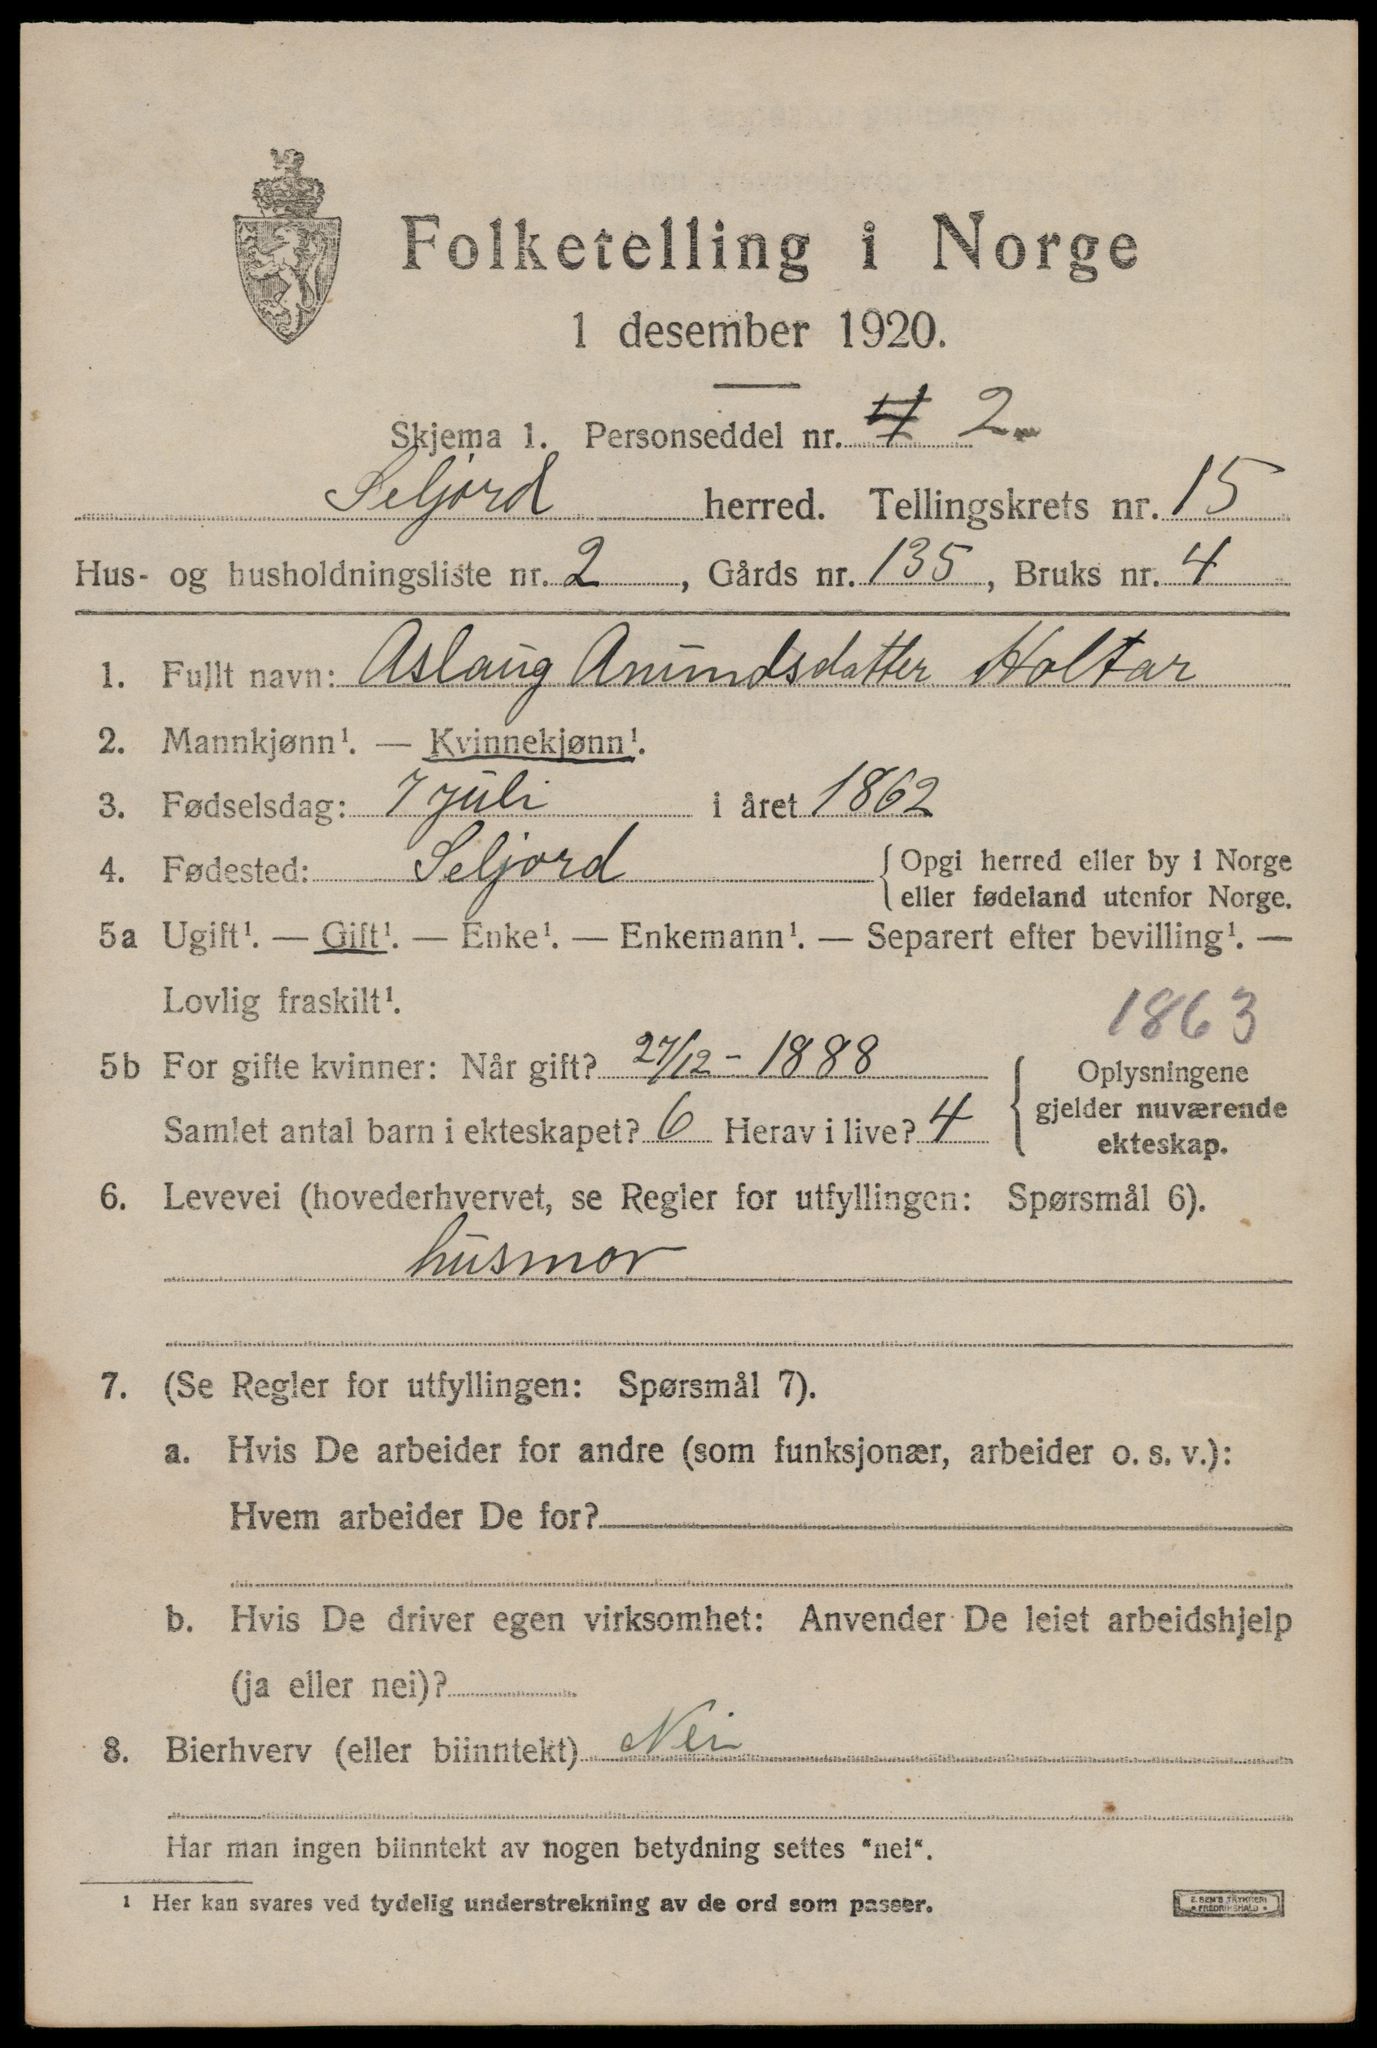 Folketelling i Norge
1 desember 1920.
Skjema 1. Personseddel nr. 4 2
Seljord herred. Tellingskrets nr. 15
Hus- og husholdningsliste nr. 2, Gårds nr. 135, Bruks nr. 4
1. Fullt navn: Aslaug Anundsdatter Holtar
2. Mannkjønn¹. — Kvinnekjønn¹.
3. Fødselsdag: 7 juli i året 1862
4. Fødested: Seljord { Opgi herred eller by i Norge
eller fødeland utenfor Norge.
5a Ugift¹. — Gift¹. — Enke¹. — Enkemann¹. — Separert efter bevilling¹. —
Lovlig fraskilt¹.
1863
5b For gifte kvinner: Når gift? 27/12 - 1888
Samlet antal barn i ekteskapet? 6 Herav i live? 4
Oplysningene
gjelder nuværende
ekteskap.
6. Levevei (hovederhvervet, se Regler for utfyllingen: Spørsmål 6).
husmor
7. (Se Regler for utfyllingen: Spørsmål 7).
a. Hvis De arbeider for andre (som funksjonær, arbeider o. s. v.):
Hvem arbeider De for?
b. Hvis De driver egen virksomhet: Anvender De leiet arbeidshjelp
(ja eller nei)?
8. Bierhverv (eller biinntekt) Nei
Har man ingen biinntekt av nogen betydning settes "nei".
1 Her kan svares ved tydelig understrekning av de ord som passer.
E. SEM'S TRYKKERI
FREDRIKSHALD